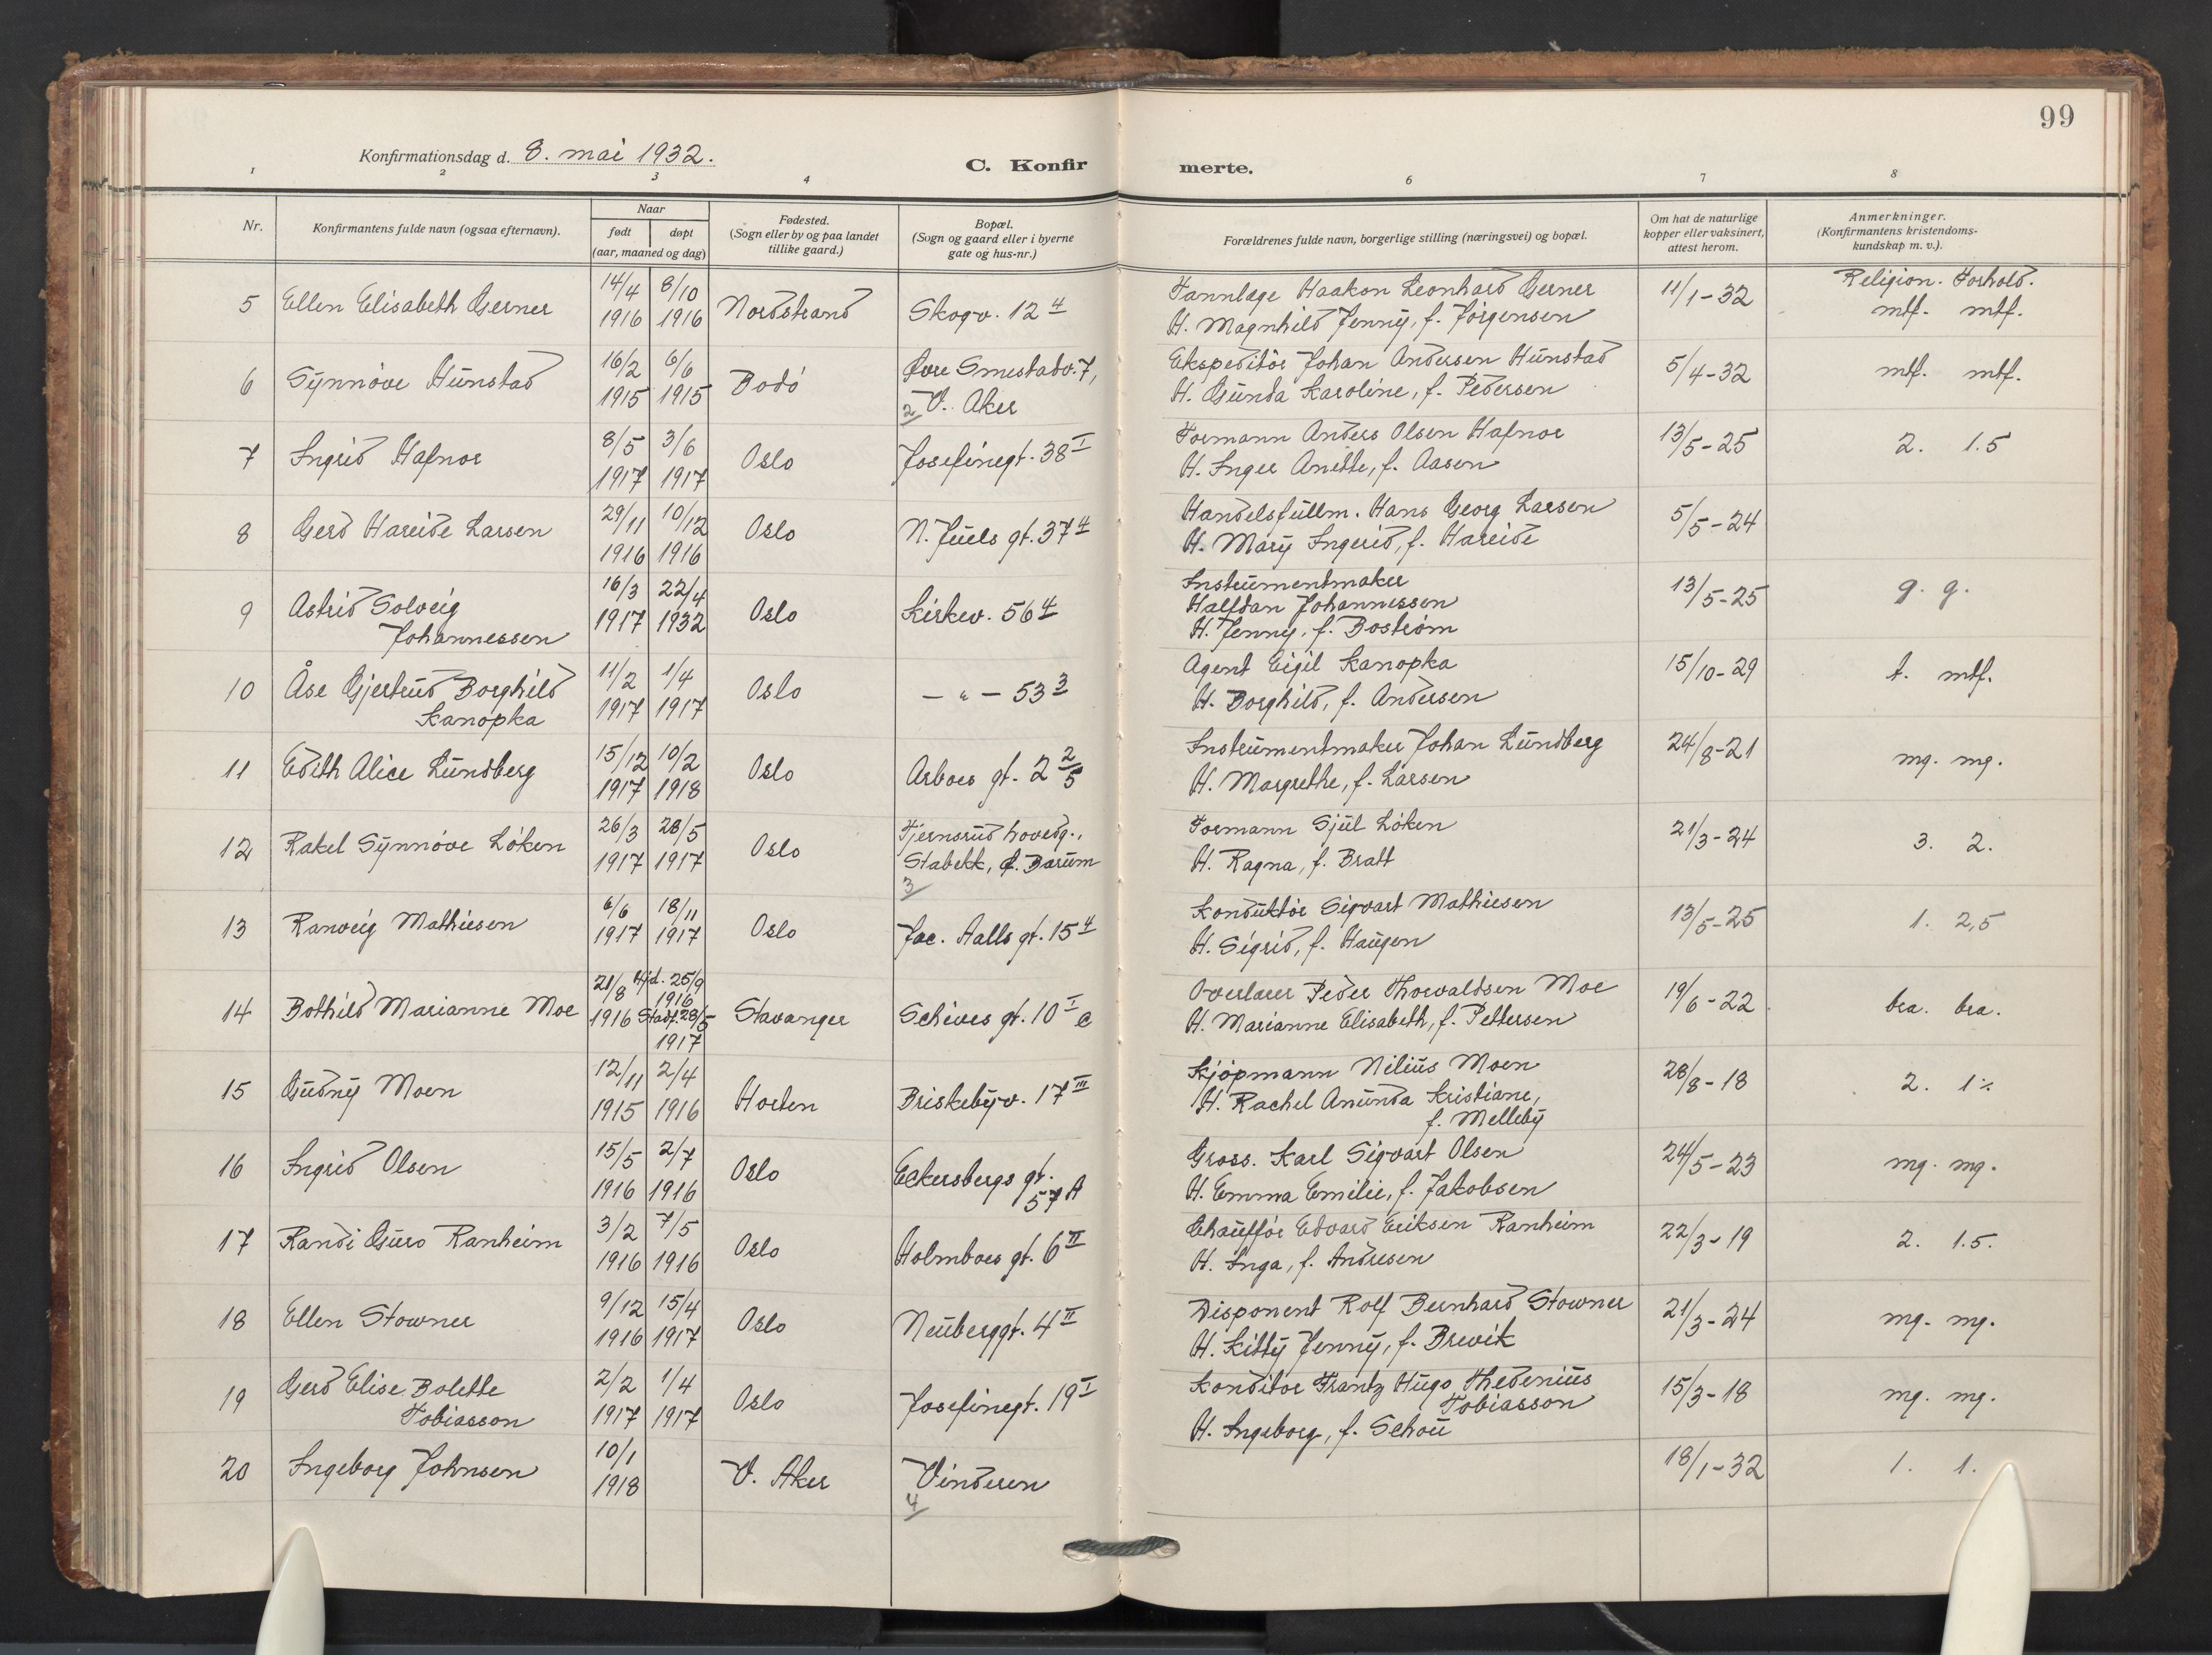 99
Konfirmationsdag d. 8. mai 1932.
C. Konfir merte.
1 2 3 4 6 7 8
Nr.
Konfirmantens fulde navn (ogsaa efternavn).
Naar
født døpt
(aar, maaned og dag)
Fødested.
(Sogn eller by og paa landet
tillike gaard.)
Bopæl.
(Sogn og gaard eller i byerne
gate og hus-nr.)
Forældrenes fulde navn, borgerlige stilling (næringsvei) og bopæl.
Om hat de naturlige
kopper eller vaksinert,
attest herom.
Anmerkninger.
(Konfirmantens kristendoms-
kundskap m. v.).
Religion. Forhold.
5 Ellen Elisabeth Gerner 14/4 1916 8/10 1916 Nordstrand Skogv. 12 4
Tannlæge Haakon Leonhard Gerner 11/1-32 mtf. mtf.
H. Magnhild Jenny, f. Jörgensen
6 Synnöve Hunstad 16/2 1915 6/6 1915 Bodö Øvre Smestadv. 7,
2 V. Aker
Ekspeditör Johan Andersen Hunstad 5/4-32 mtf. mtf.
H. Gunda Karoline, f. Pedersen
7 Ingrid Hafnor 8/5 1917 3/6 1917 Oslo Josefinegt. 38 I
Formann Anders Olsen Hafnor 13/5-25 2. 1.5
H. Inger Anette, f. Aasen
8 Gerd Hareide Larsen 29/11 1916 10/12 1916 Oslo N. Juels gt. 37 4
Handelsfullm. Hans Georg Larsen 5/5-24
H. Mary Ingerid, f. Hareide
9 Astrid Solveig
Johannessen 16/3 1917 22/4 1932 Oslo Kirkev. 56 4
Instrumentmaker
Halfdan Johannessen 13/5-25 g. g.
H. Jenny, f. Boström
10 Åse Gjertrud Borghild
Kanopka 11/2 1917 1/4 1917 Oslo - " - 53 3
Agent Eigil Kanopka 15/10-29 t. mtf.
H. Borghild, f. Andersen
11 Edith Alice Lundberg 15/12 1917 10/2 1918 Oslo Arboes gt. 2 2/5
Instrumentmaker Johan Lundberg 24/8-21 mg. mg.
H. Margrethe, f. Larsen
12 Rakel Synnöve Löken 26/3 1917 28/5 1917 Oslo Tjernsrud hovedg.,
Stabekk, Ø. Bærum
3
Formann Sjul Löken 21/3-24 3. 2.
H. Ragna, f. Bratt
13 Ranveig Mathiesen 6/6 1917 18/11 1917 Oslo Jac. Aalls gt. 15 4
Konduktör Sigvart Mathiesen 13/5-25 1. 2,5
H. Sigrid, f. Haugen
14 Bothild Marianne Moe 21/8 1916 Hjd. 25/9 1916 Stadf. 28/5 1917 Stavanger Schives gt. 10 I c
Overlærer Peder Thorvaldsen Moe 19/6-22 bra. bra.
H. Marianne Elisabeth, f. Pettersen
15 Gudny Moen 12/11 1915 2/4 1916 Horten Briskebyv. 17 III
Kjöpmann Nilius Moen 28/8-18 2. 1 ½
H. Rachel Anunda Kristiane,
f. Melleby
16 Ingrid Olsen 15/5 1916 2/7 1916 Oslo Eckersbergs gt.
57 A
Gross. Karl Sigvart Olsen 24/5-23 mg. mg.
H. Emma Emilie, f. Jakobsen
17 Randi Guro Ranheim 3/2 1916 7/5 1916 Oslo Holmboes gt. 6 II
Chaufför Edvard Eriksen Ranheim 22/3-19 2. 1.5.
H. Inga, f. Andresen
18 Ellen Stowner 9/12 1916 15/4 1917 Oslo Neuberggt. 4 II
Disponent Rolf Bernhard Stowner 21/3-24 mg. mg.
H. Kitty Jenny, f. Brevik
19 Gerd Elise Bolette
Tobiasson 2/2 1917 1/4 1917 Oslo Josefinegt. 19 I
Konditor Frantz Hugo Thedenius
Tobiasson 15/3-18 mg. mg.
H. Ingeborg, f. Schou
20 Ingeborg Johnsen 10/1 1918 V. Aker Vinderen
4
18/1-32 1. 1.